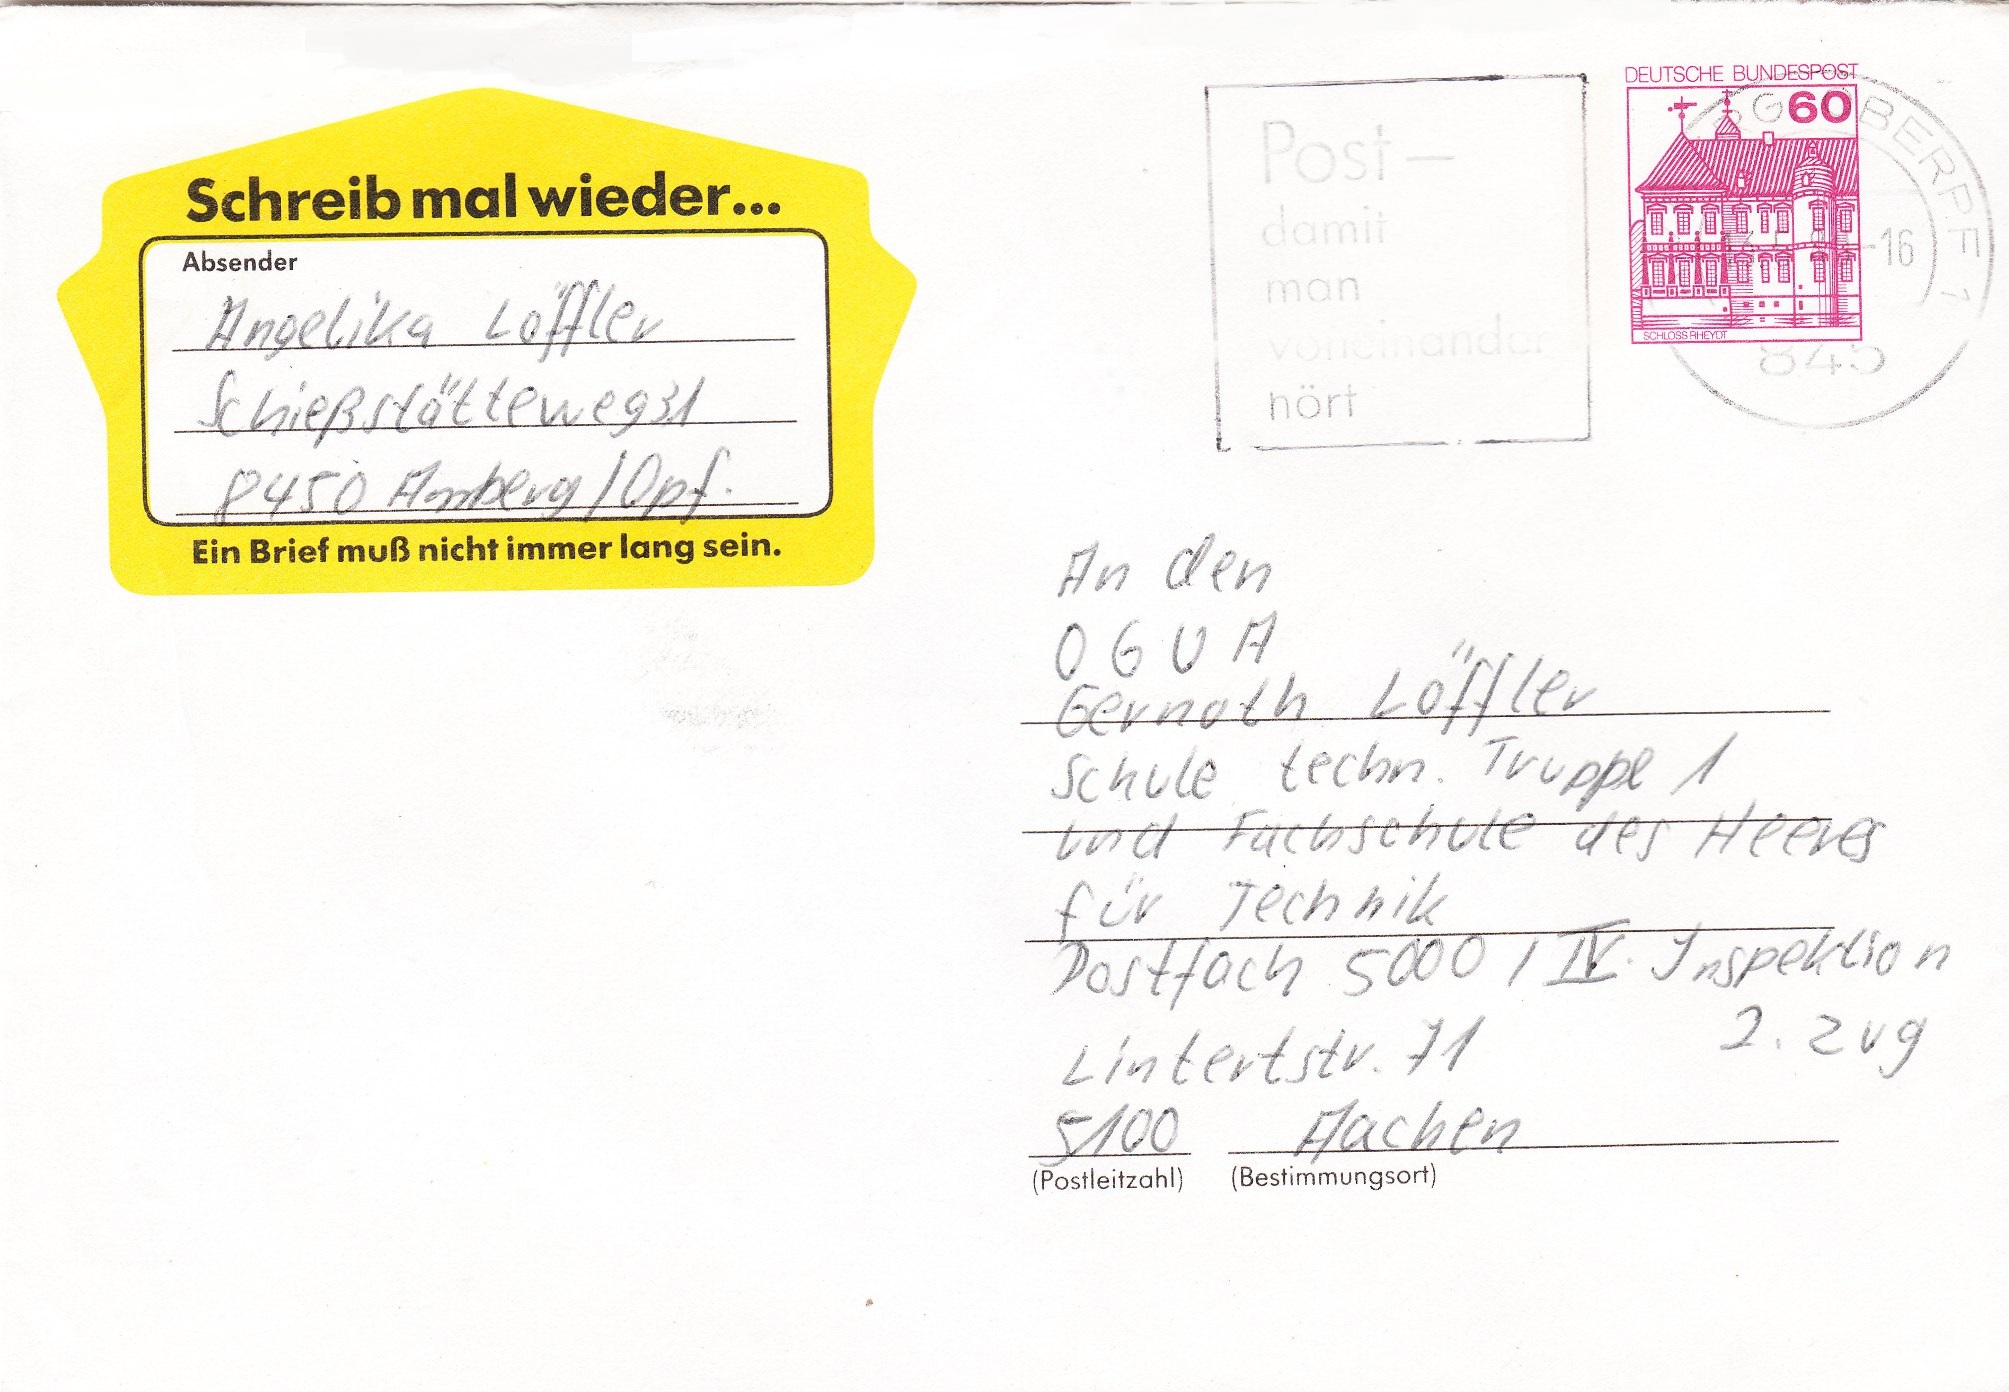 Schreib mal wieder...
Absender
Angelika Löffler
Schießstätteweg 31
8450 Amberg / Opf.
Ein Brief muß nicht immer lang sein.
Post –
damit
man
voneinander
hört
DEUTSCHE BUNDESPOST
60
SCHLOSS RHEYDT
RG OBERPF 1
-16
845
An den
OGUA
Gernoth Löffler
Schule techn. Truppe 1
und Fachschule des Heeres
für Technik
Postfach 5000 / IV. Inspektion
2. Zug
Lintertstr. 71
5100 Aachen
(Postleitzahl) (Bestimmungsort)